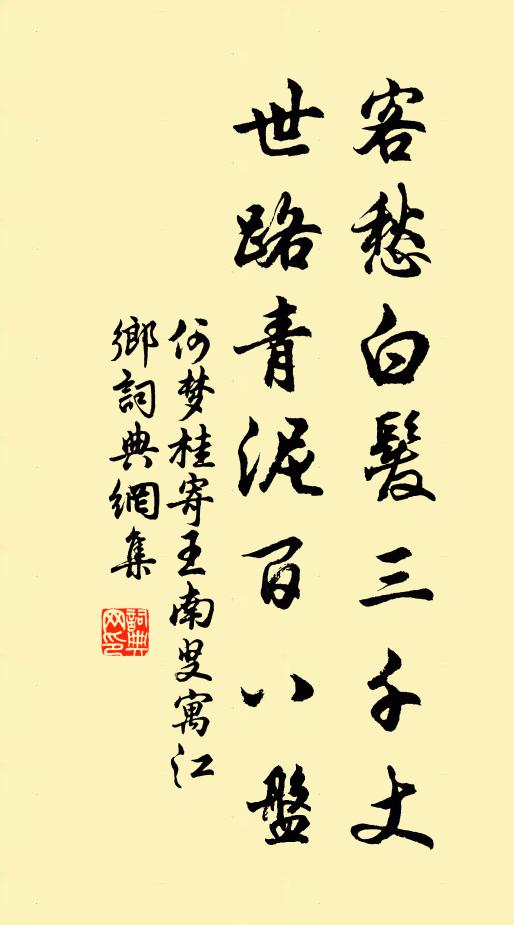 客愁白髮三千丈
世路青泥百八盤
何梦桂寄王南叟寓江
鄉詞典網集
詞典
网印